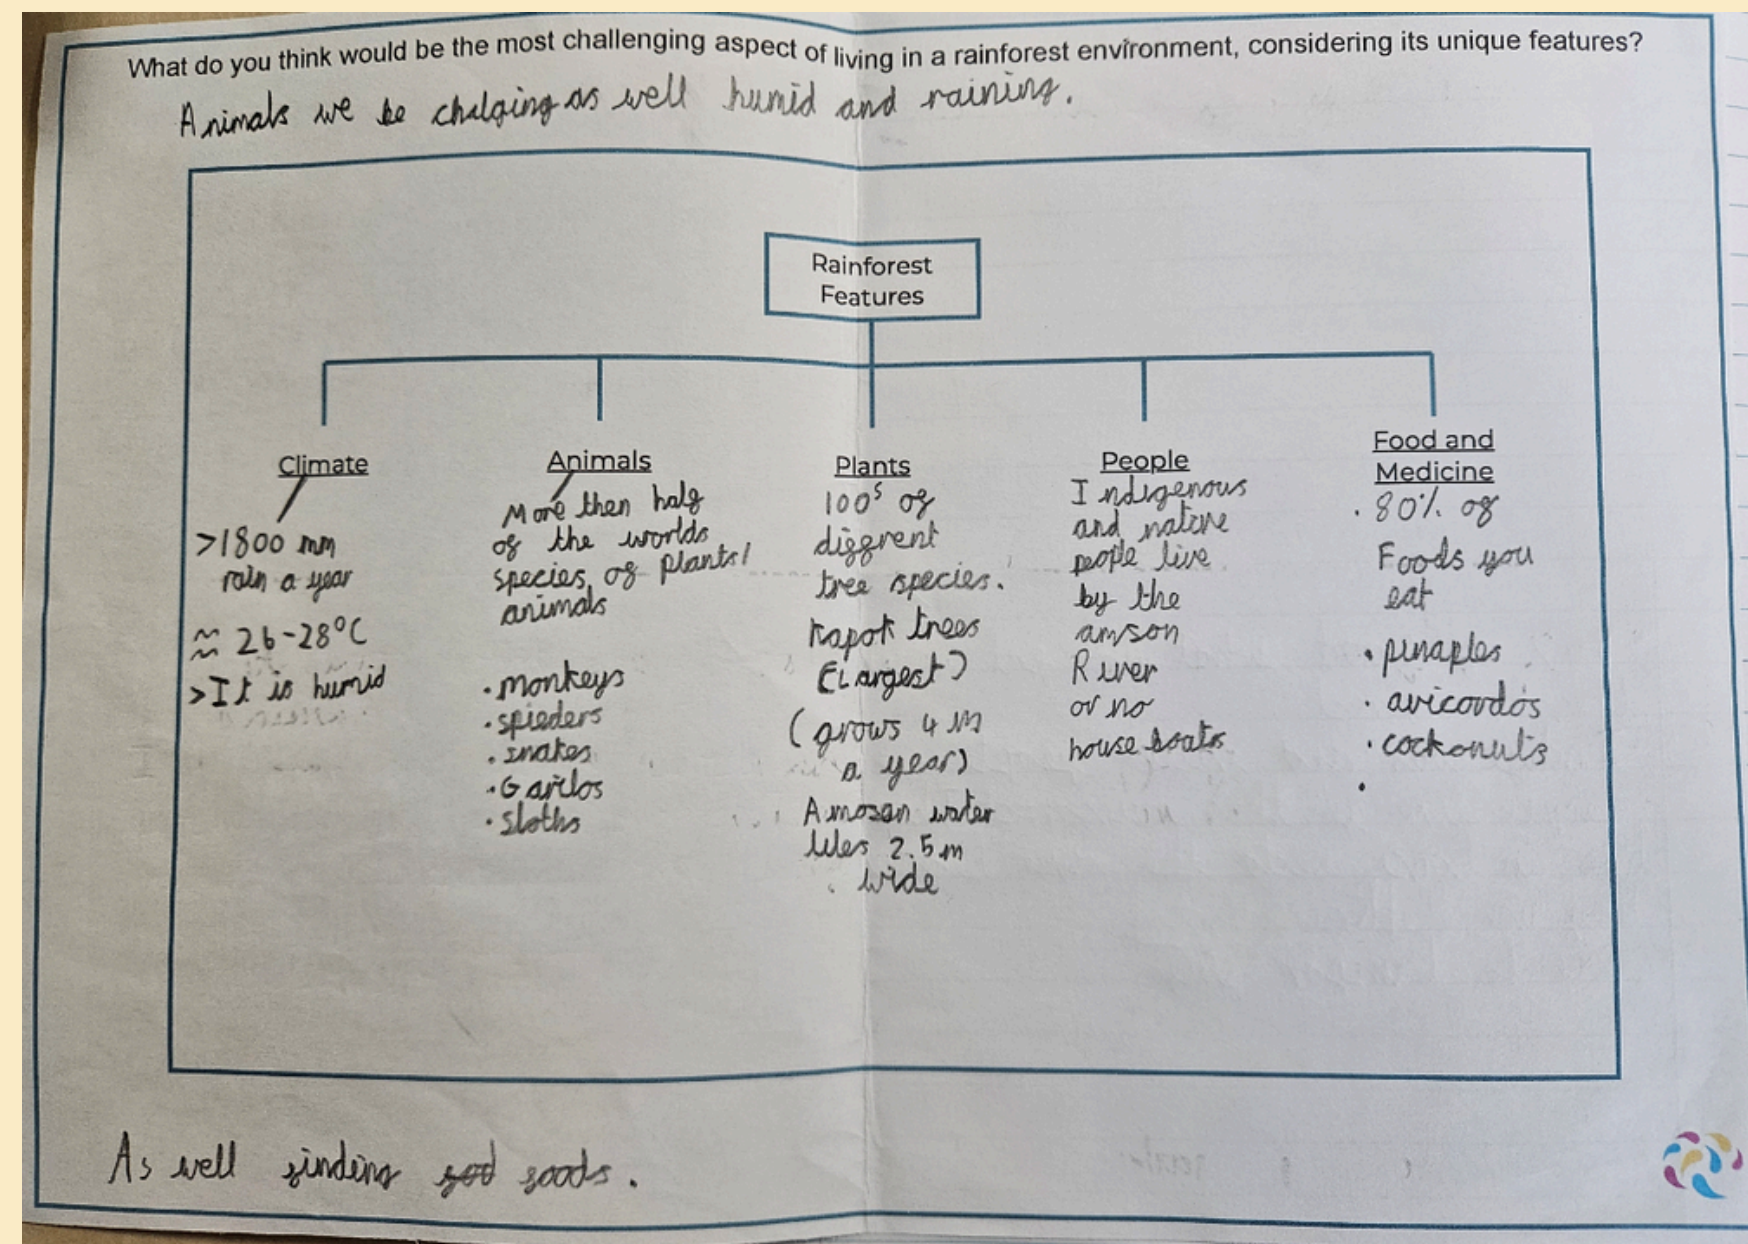 What do you think would be the most challenging aspect of living in a rainforest environment, considering its unique features?
Animals we be chalging as well humid and raining.
Rainforest
Features
Climate
>1800 mm
rain a year
≈ 26-28°C
>It is humid
Animals
More then half
of the worlds
species, of plants/
animals
• monkeys
• spieders
• snakes
• Garilos
• sloths
Plants
100s of
diffrent
tree species.
kapok trees
(Largest)
(grows 4 m
a year)
Amozan water
liles 2.5m
wide
People
Indigenous
and native
people live
by the
amson
River
or no
house boats
Food and
Medicine
• 80% of
Foods you
eat
• pinaples
• avicordos
• cockonuts
•
As well finding fod foods.